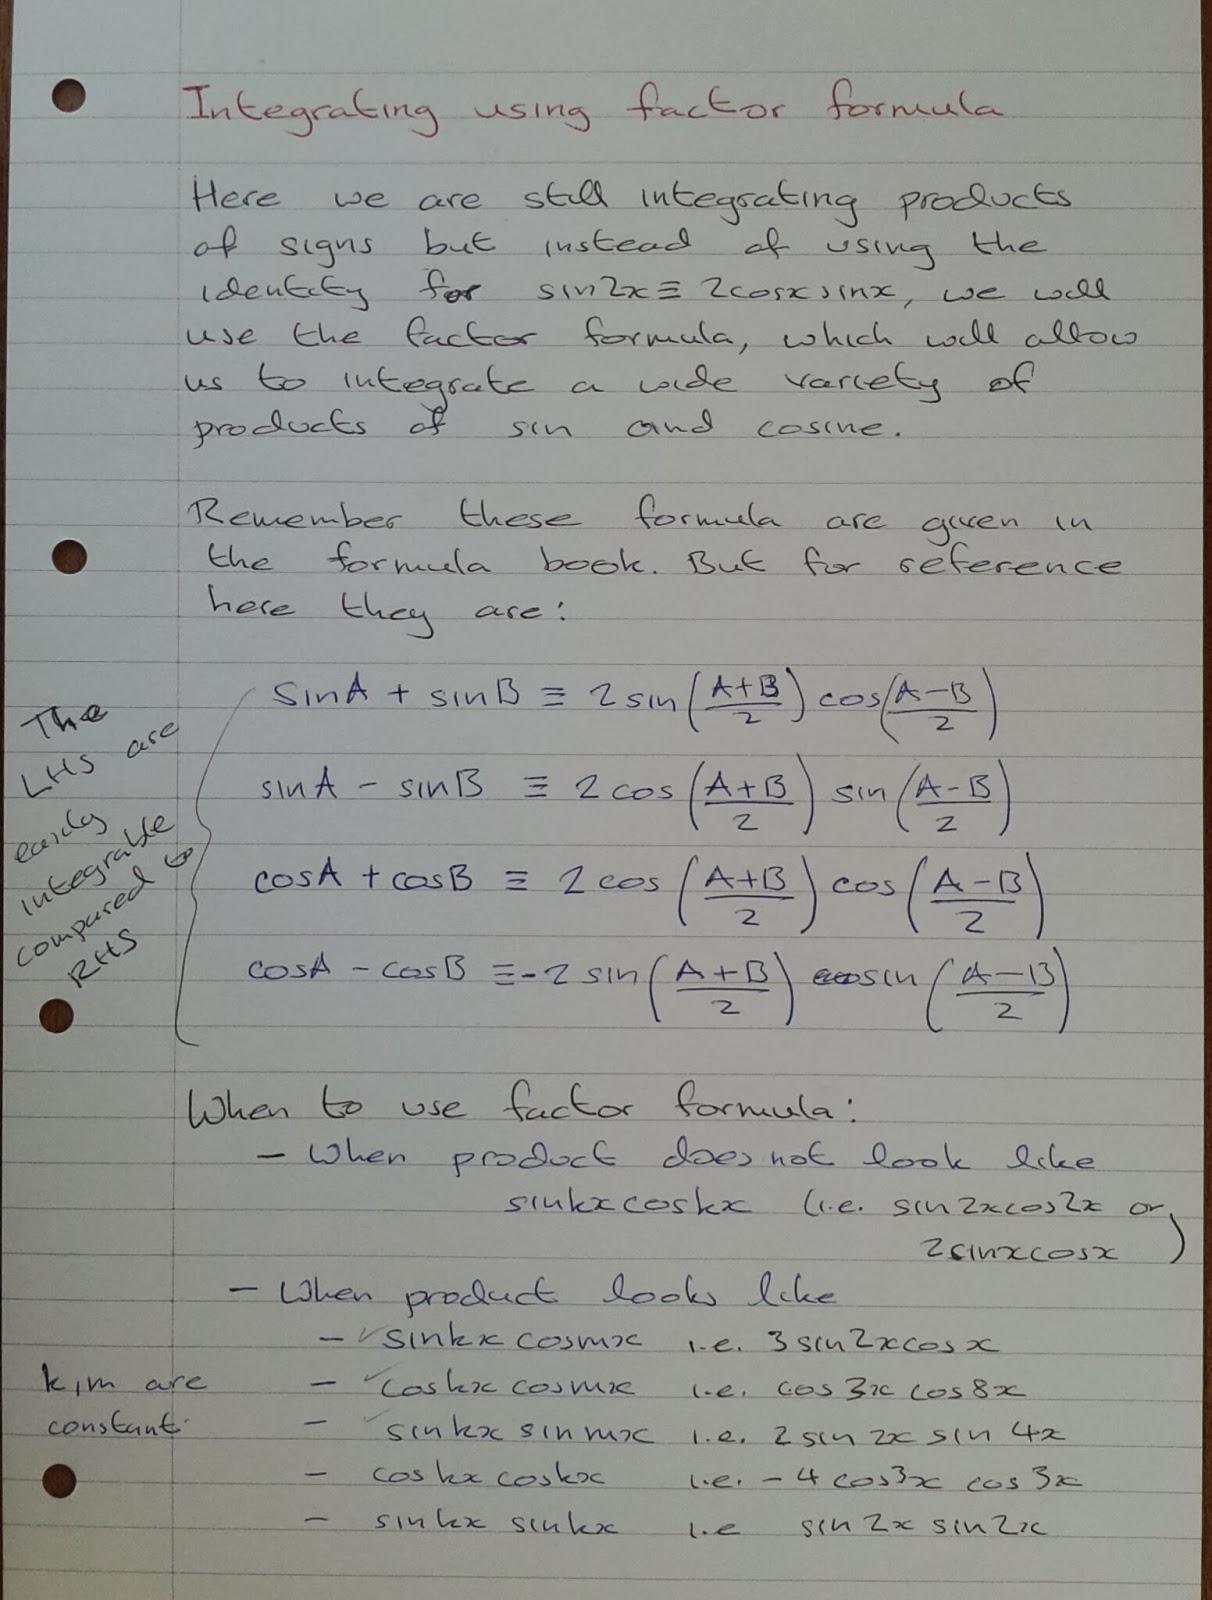 Integrating using factor formula
Here we are still integrating products
of signs but instead of using the
identity for sin2x ≡ 2cosxsinx, we will
use the factor formula, which will allow
us to integrate a wide variety of
products of sin and cosine.
Remember these formula are given in
the formula book. But for reference
here they are:
The
LHS are
easily
integrable
compared to
RHS
sinA + sinB ≡ 2 sin(A+B/2) cos(A-B/2)
sinA - sinB ≡ 2 cos(A+B/2) sin(A-B/2)
cosA + cosB ≡ 2 cos(A+B/2) cos(A-B/2)
cosA - cosB ≡ -2 sin(A+B/2) sin(A-B/2)
When to use factor formula:
- When product does not look like
sinkxcoskx (i.e. sin2xcos2x or
2sinxcosx)
- When product looks like
- ✓ sinkx cosmx i.e. 3sin2xcosx
k,m are
constant.
- ✓ coskx cosmx i.e. cos3x cos8x
- ✓ sinkx sinmx i.e. 2 sin 2x sin 4x
- coskx coskx i.e. -4 cos3x cos 3x
- sinkx sinkx i.e sin2x sin2x